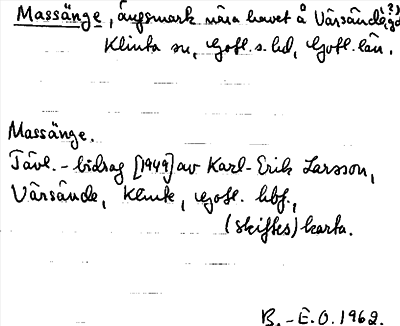 Massänge, ängsmark nära havet å Vårsände (?)
Klinta sn, Gotl. s. hd, Gotl. län.
Massänge.
Tävl.-bidrag [1949] av Karl-Erik Larsson,
Vårsände, Klinte, Gotl. hbf.,
(skiftes) karta.
B.-E.O. 1962.